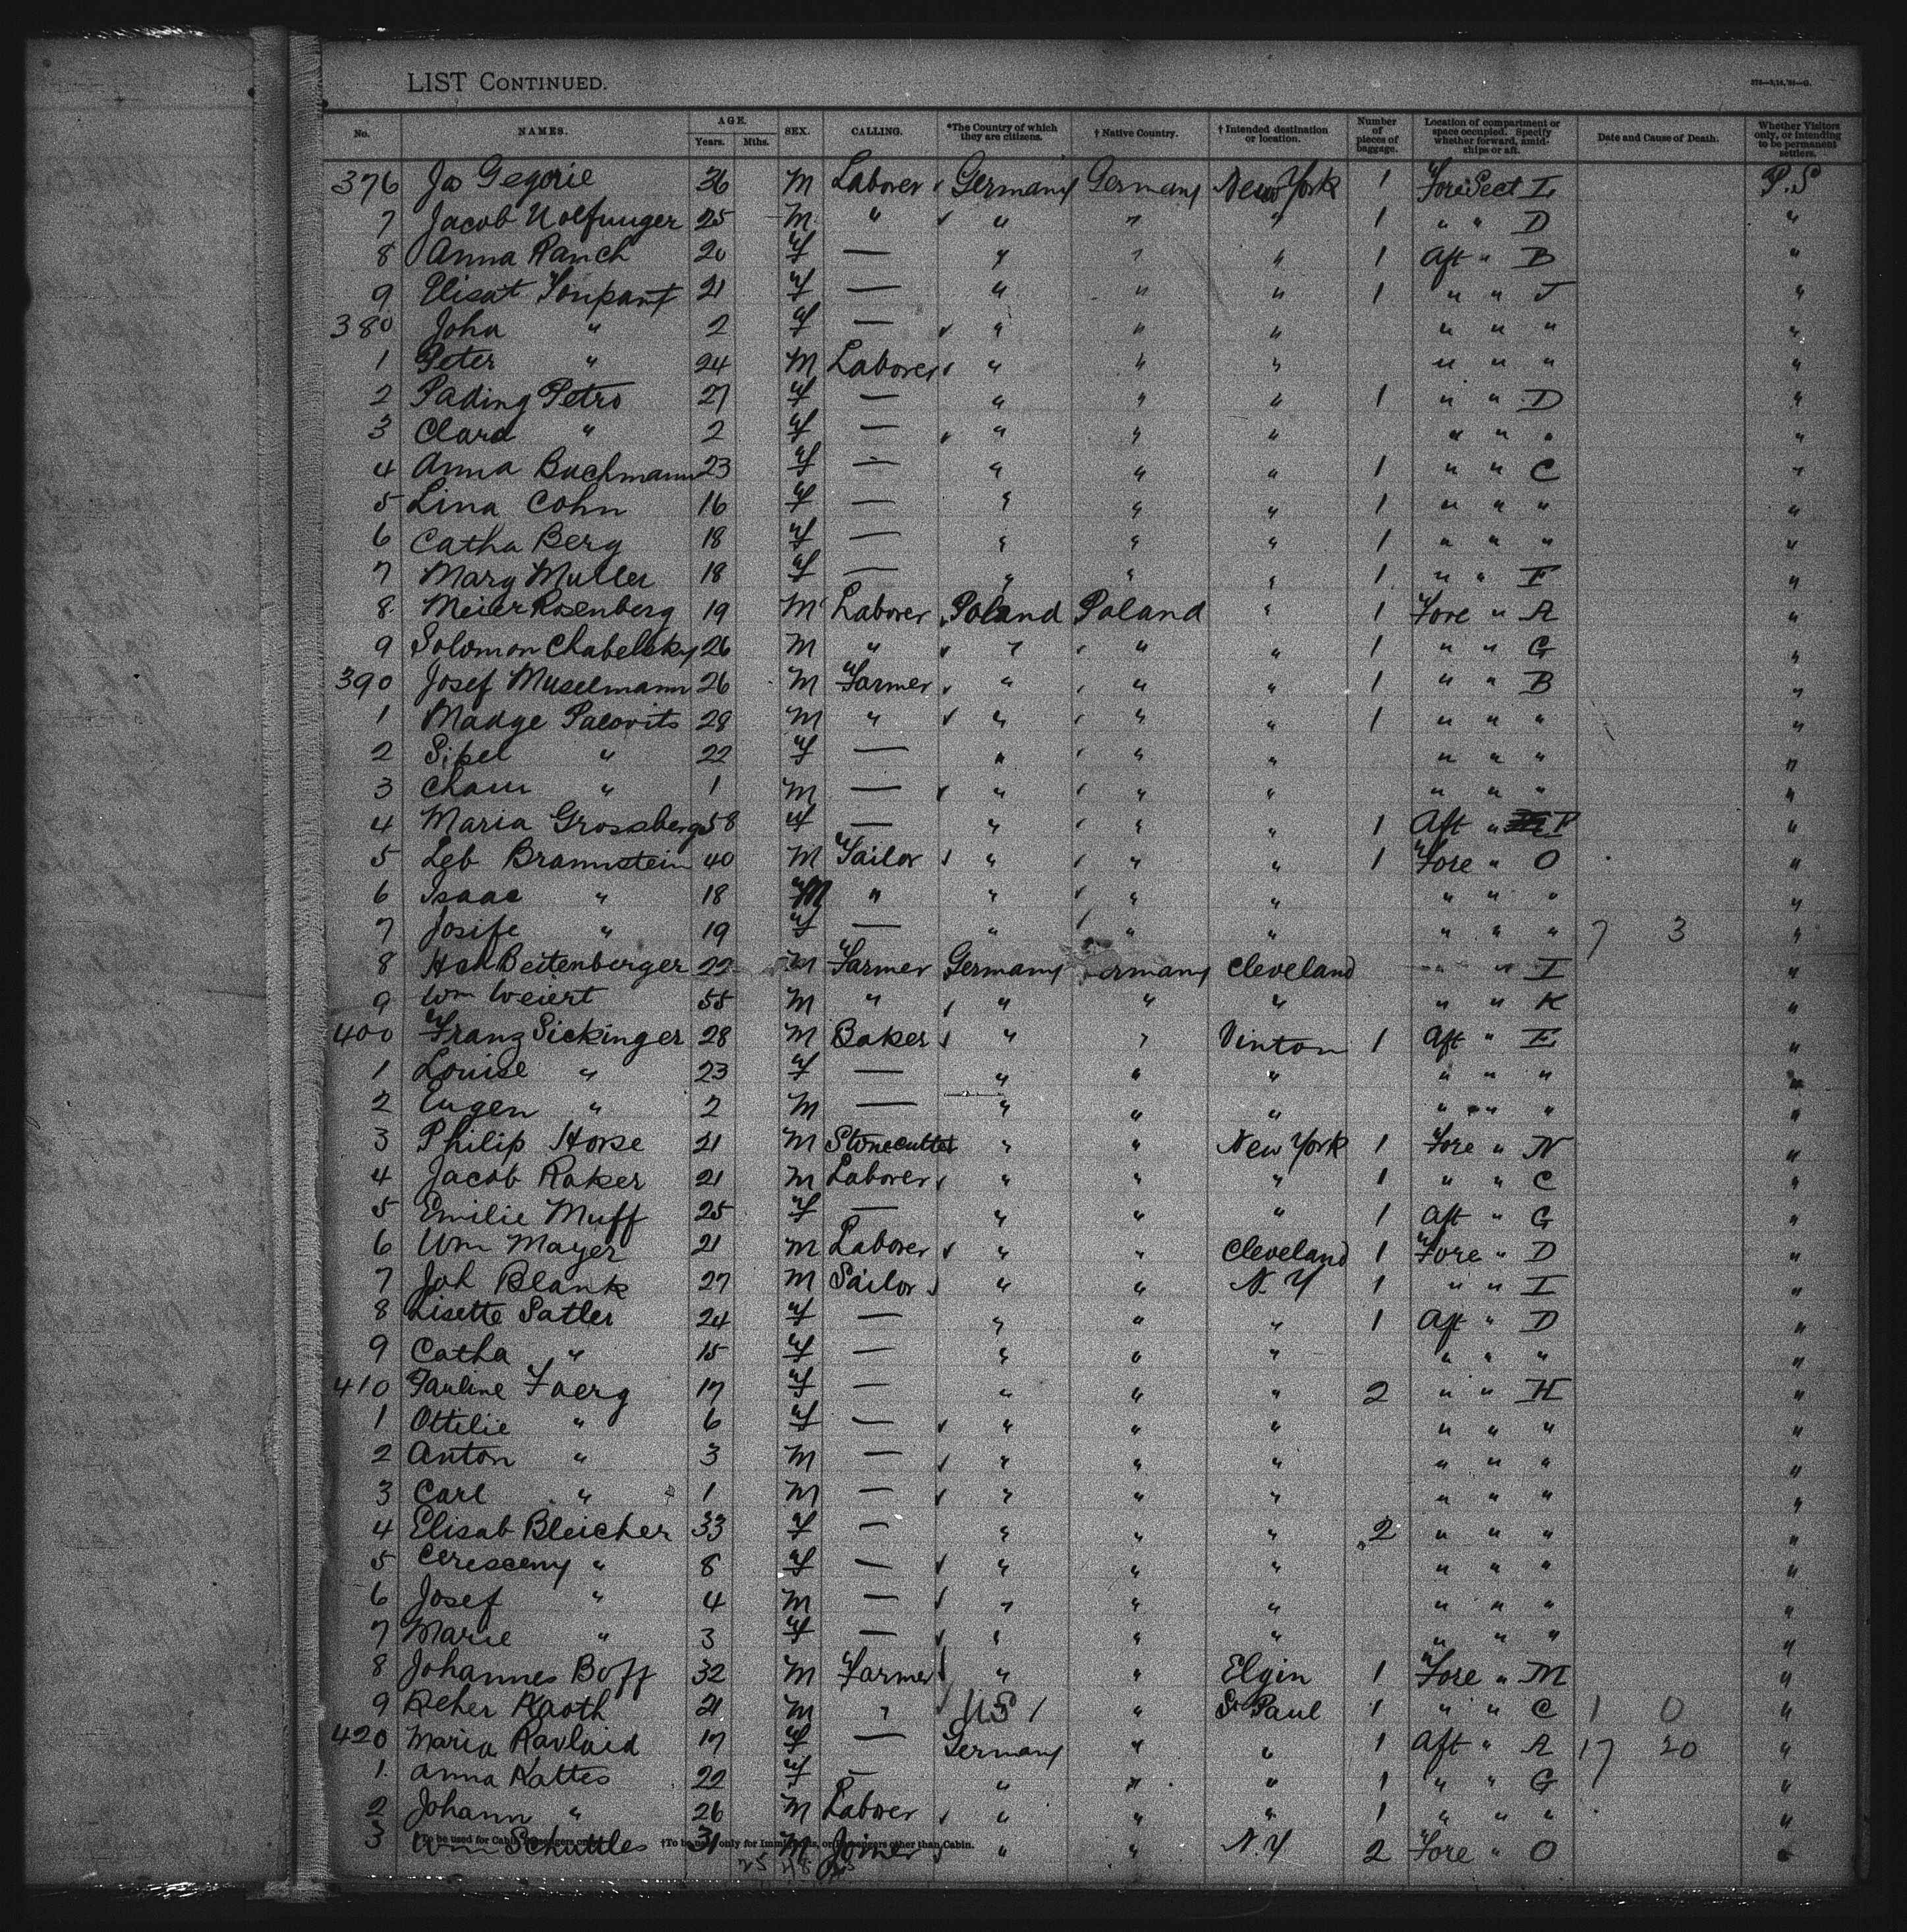 LIST CONTINUED.
No. NAMES. AGE. Years. Mths. SEX. CALLING. *The Country of which they are citizens. † Native Country. † Intended destination or location. Number of pieces of baggage. Location of compartment or space occupied. Specify whether forward, amidships or aft. Date and Cause of Death. Whether Visitors only, or intending to be permanent settlers.
376 Jas Gegorie 36 M Laborer Germany Germany New York 1 Fore Sect I P.S
7 Jacob Nolfunger 25 M " " " " 1 " " D "
8 Anna Ranch 20 f — " " " 1 Aft " B "
9 Elisat 21 f — " " " 1 " " J "
380 Joha " 2 f — " " " " " " "
1 Peter " 24 M Laborer " " " " " " "
2 Pading Petro 21 f — " " " 1 " " D "
3 Clara " 2 f — " " " " " " "
4 Anna Buchmann 23 f — " " " 1 " " C "
5 Lina Cohn 16 f — " " " 1 " " " "
6 Catha Berg 18 f — " " " 1 " " " "
7 Mary Muller 18 f — " " " 1 " " F "
8 Meier Rosenberg 19 M Laborer Poland Poland " 1 Fore " A "
9 Solomon Chabelsky 26 M " " " " 1 " " G "
390 Josef Muselmann 26 M Farmer " " " 1 " " B "
1 Madge Palovits 28 M " " " " 1 " " " "
2 Sipel " 22 f — " " " " " " "
3 Chaim " 1 M — " " " " " " "
4 Maria Grossberg 58 f — " " " 1 Aft " P "
5 Leb Brannstein 40 M Tailor " " " 1 Fore " O "
6 Isaac " 18 M " " " " " " " "
7 Josife " 19 f — " " " " " " 7 3 "
8 Hch Beitenberger 22 M Farmer Germany Germany Cleveland " " I "
9 Wm Weiert 55 M " " " " " " K "
400 Franz Sickinger 28 M Baker " " Vinton 1 Aft " E "
1 Louise " 23 f — " " " " " " "
2 Eugen " 2 M — " " " " " " "
3 Philip Horse 21 M Stonecutter " " New York 1 Fore " N "
4 Jacob Raker 21 M Laborer " " " 1 " " C "
5 Emilie Muff 25 f — " " " 1 Aft " G "
6 Wm Mayer 21 M Laborer " " Cleveland 1 Fore " D "
7 Joh Blank 27 M Sailor " " N.Y 1 " " I "
8 Lisette Satler 24 f — " " " 1 Aft " D "
9 Catha " 15 f — " " " " " " "
410 Pauline Faerg 17 f — " " " 2 " " H "
1 Ottilie " 6 f — " " " " " " "
2 Anton " 3 M — " " " " " " "
3 Carl " 1 M — " " " " " " "
4 Elisab Bleicher 33 f — " " " 2 " " " "
5 Cresceny " 8 f — " " " " " " "
6 Josef " 4 M — " " " " " " "
7 Marie " 3 f — " " " " " " "
8 Johannes Boff 32 M Farmer " " Elgin 1 Fore " M "
9 Reher Kaoth 21 M " US " St Paul 1 " " C 1 0 "
420 Maria Ravlaid 17 f — Germany " " 1 Aft " A 17 20 "
1 Anna Kattes 22 f — " " " 1 " " G "
2 Johann " 26 M Laborer " " " 1 " " " "
3 Wm Schuttles 31 M Joiner " " N.Y 2 Fore " O "
*To be used for Cabin Passengers only. †To be used only for Immigrants, or Passengers other than Cabin.